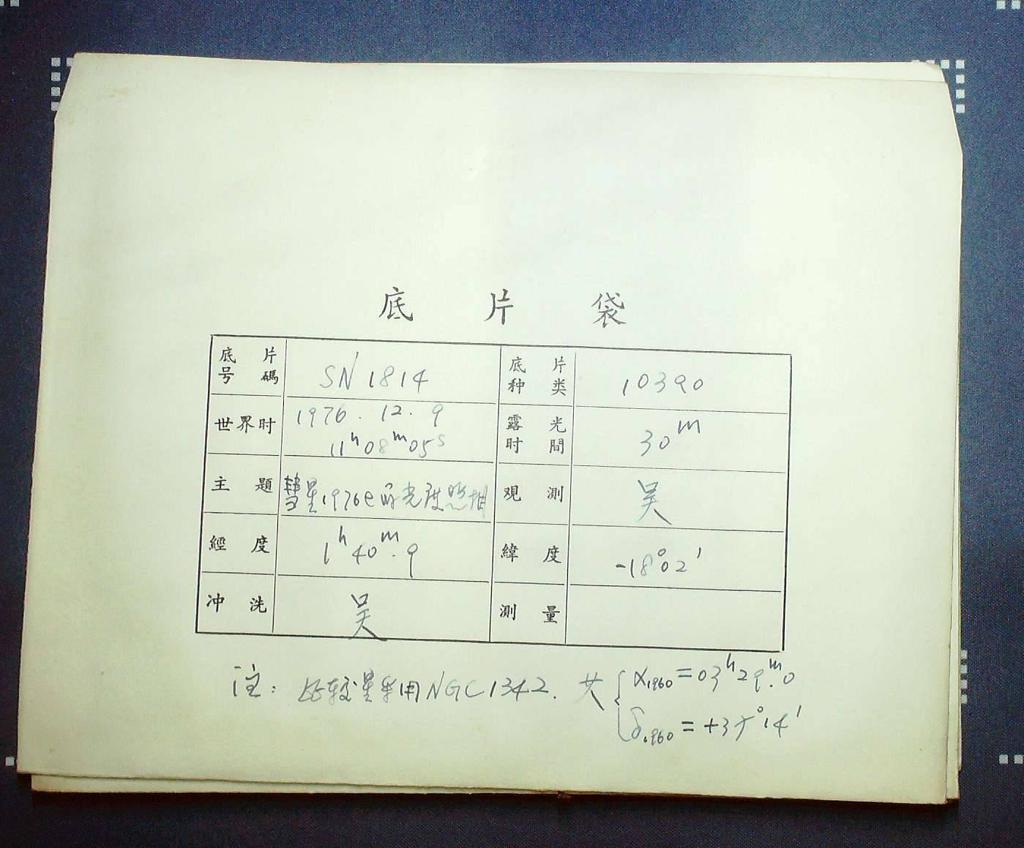 底片袋
底片号碼 SN 1814 底片种类 10390
世界时 1976.12.9 露光时間 30m
11h08m05s
主題 彗星1976e的光度照相 观測 吴
經度 1h40m.9 緯度 -18°02′
冲洗 吴 測量
注: 比较星采用NGC1342. 其 α1960=03h29m.0
δ1960=+37°14′